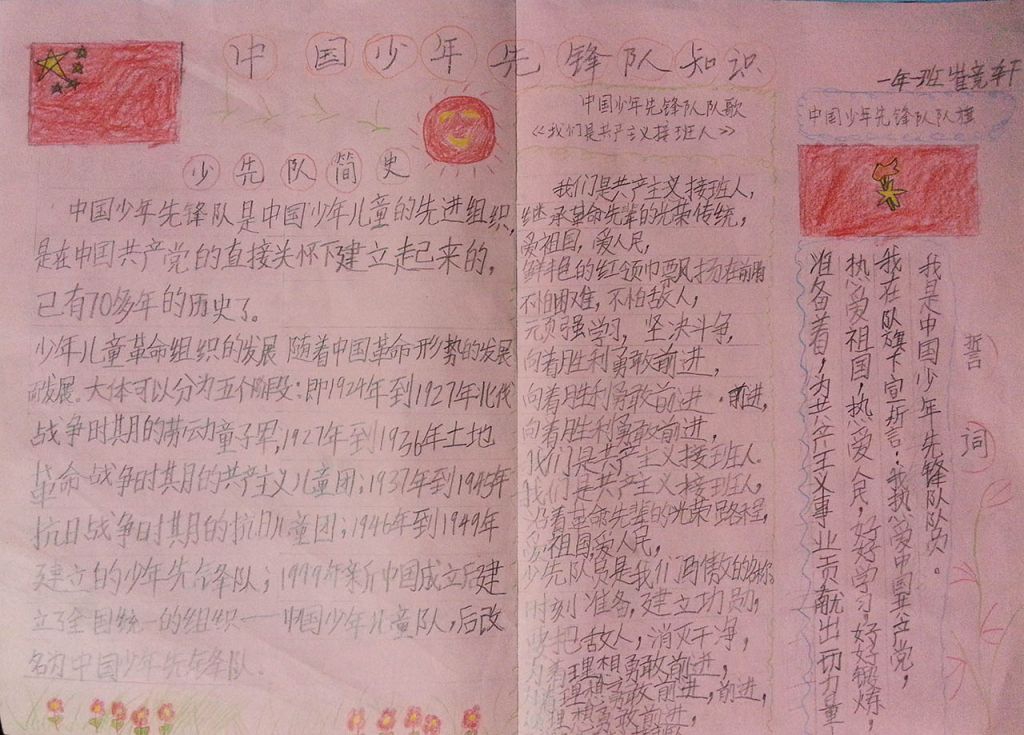 中国少年先锋队知识
一年班
少先队简史
中国少年先锋队是中国少年儿童的先进组织,
是在中国共产党的直接关怀下建立走起来的,
已有70多年的历史了。
少年儿童革命组织的发展随着中国革命形势的发展
而发展。大体可以分为五个阶段:即1924年到1927年北伐
战争时其月的劳动童子军;1927年到1936年土地
革命战争时其月的共产主义儿童团;1937年到1945年
抗日战争时其月的抗日儿童团;1946年到1949年
建立的少年先锋队;1999年新中国成立后建
立了全国统一的组织——中国少年儿童队,后改
名为中国少年先锋队.
中国少年先锋队队歌
《我们是共产主义接班人》
我们是共产主义接班人,
继承革命先辈的光荣传统,
爱祖国,爱人民,
鲜艳的红领巾飘扬在前胸
不怕困难,不怕敌人,
元页强学习,坚决斗争,
向着胜利勇敢前进,
向着胜利勇敢前进,前进,
向着胜利勇敢前进,
我们是共产主义接班人.
我们是共产主义接班人,
沿着革命先辈的光荣路程,
爱祖国,爱人民,
少先队员是我们骄傲的名称.
时刻准备,建立功勋,
要把敌人,消灭干净,
为着理想勇敢前进,
为着理想勇敢前进,前进,
理想勇敢前进,
中国少年先锋队队旗
誓词
我是中国少年先锋队队员。
我在队旗下宣誓:我热爱中国共产党,
热爱祖国,热爱人民,好好学习,好好锻炼,
准备着,为共产主义事业贡献出一切力量